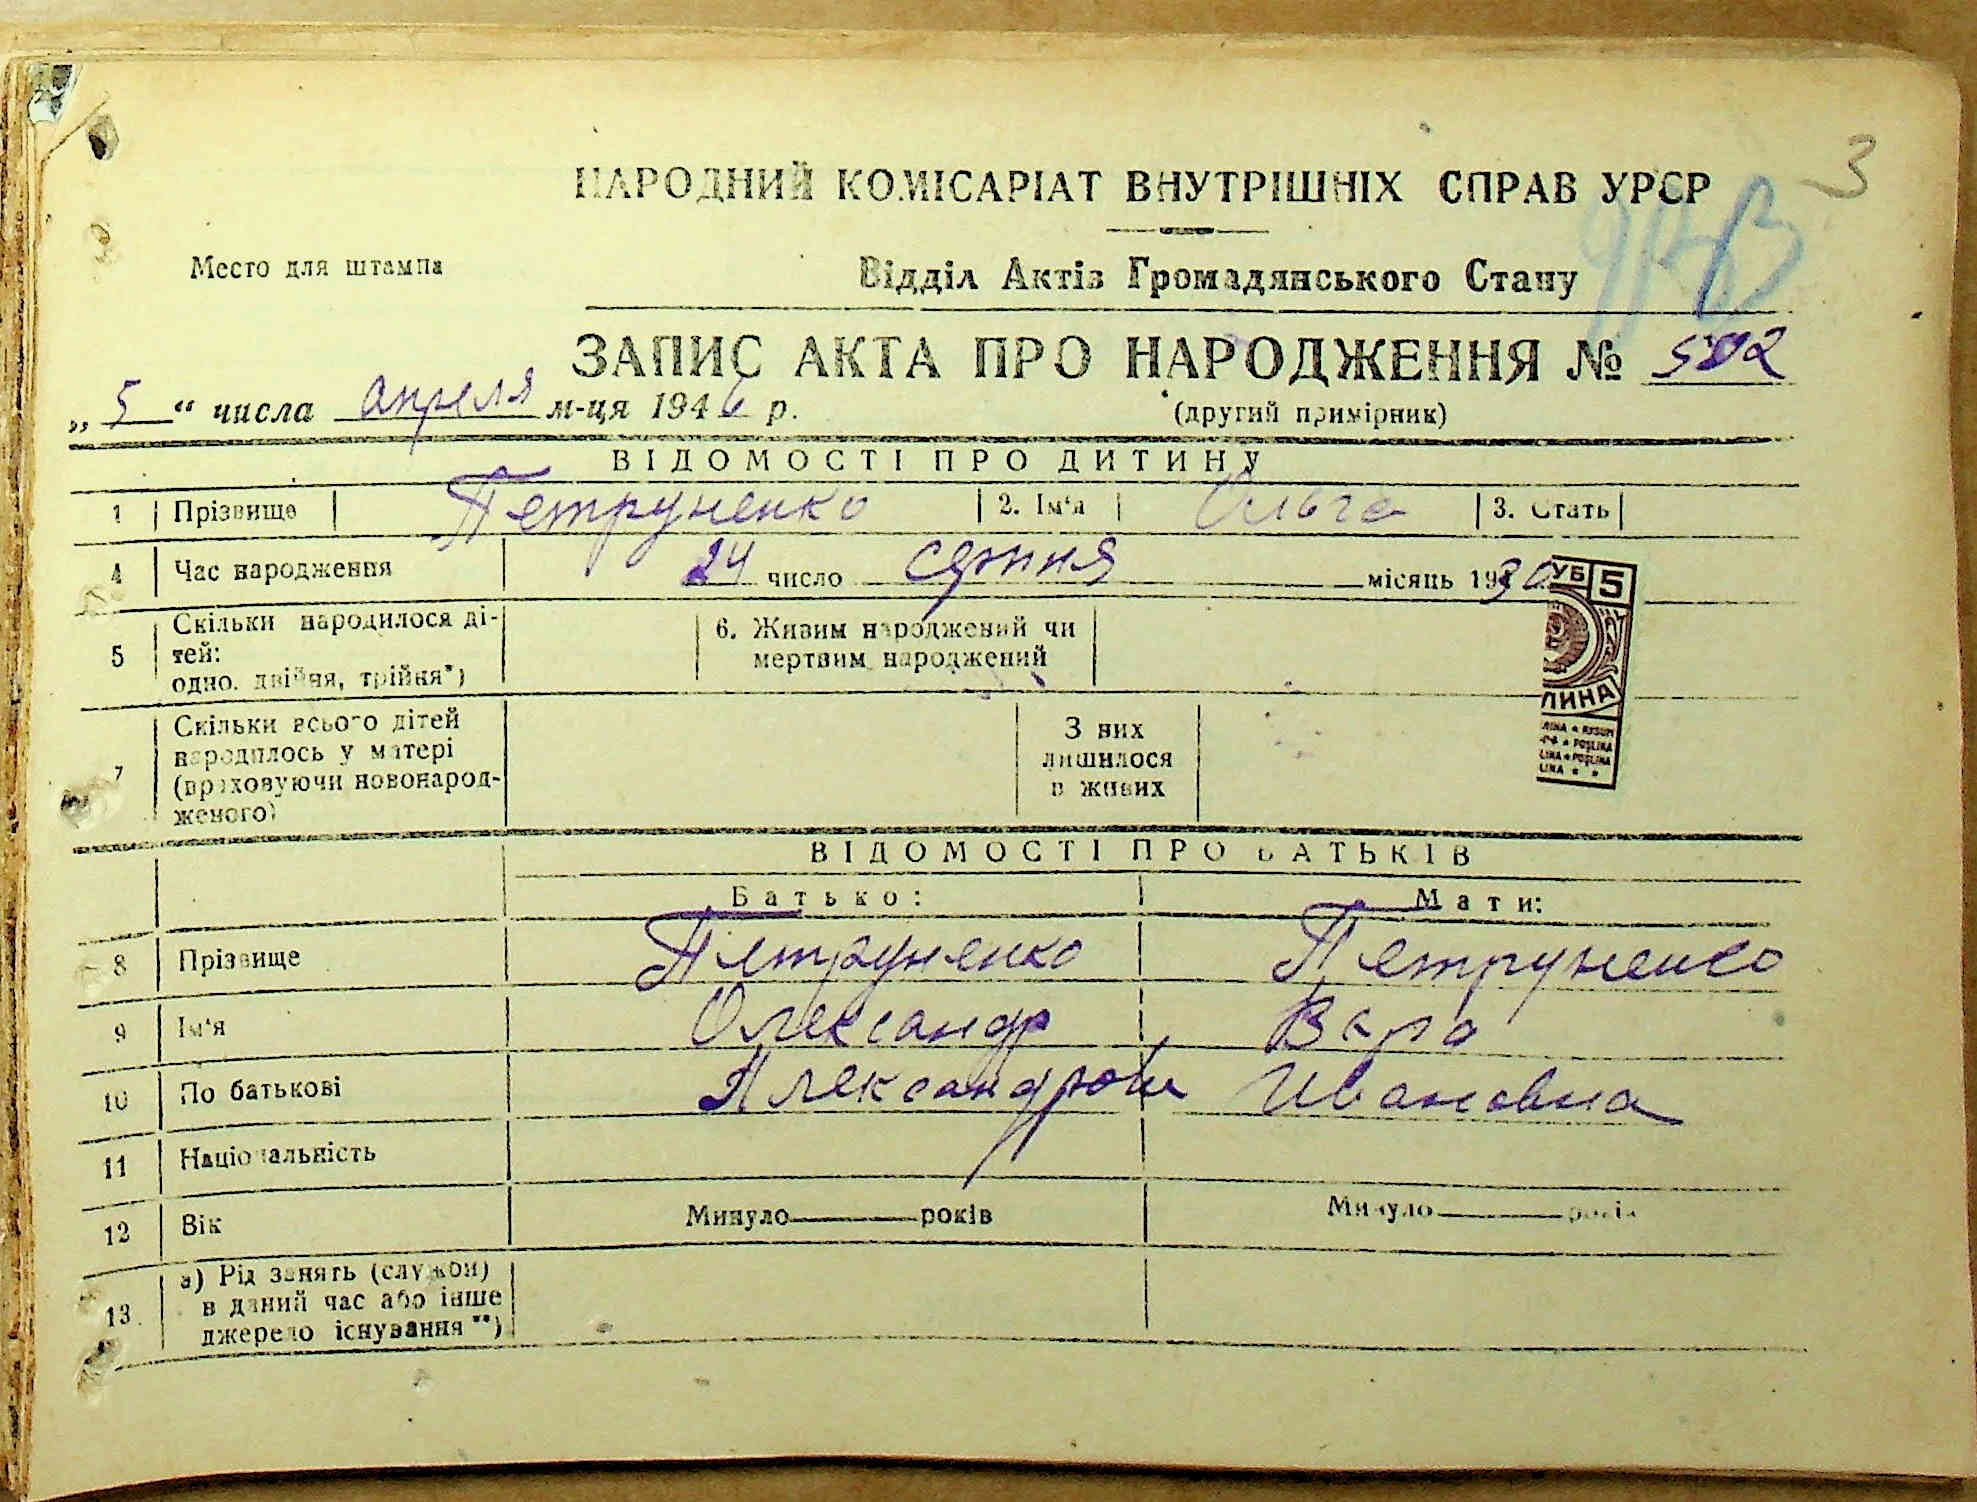 3
НАРОДНИЙ КОМІСАРІАТ ВНУТРІШНІХ СПРАВ УРСР
Место для штампа
Відділ Актів Громадянського Стану
ЗАПИС АКТА ПРО НАРОДЖЕННЯ № 502
„ 5 “ числа апреля м-ця 1946 р.
(другий примірник)
ВІДОМОСТІ ПРО ДИТИНУ
1 Прізвище Петруненко 2. Ім‘я Ольга 3. Стать
4 Час народження 24 число серпня місяць 1930
УБ 5
ЛИНА
5 Скільки народилося ді-
тей:
одно. двійня, трійня*)
6. Живим народжений чи
мертвим народжений
7 Скільки всього дітей
народилось у матері
(враховуючи новонарод-
женого)
З них
лишилося
в живих
ВІДОМОСТІ ПРО БАТЬКІВ
Батько: Мати:
8 Прізвище Петруненко Петруненко
9 Ім‘я Олександр Вера
10 По батькові Александрови Ивановна
11 Національність
12 Вік Минуло років Минуло років
13. а) Рід занять (служби)
в даний час або інше
джерело існування **)